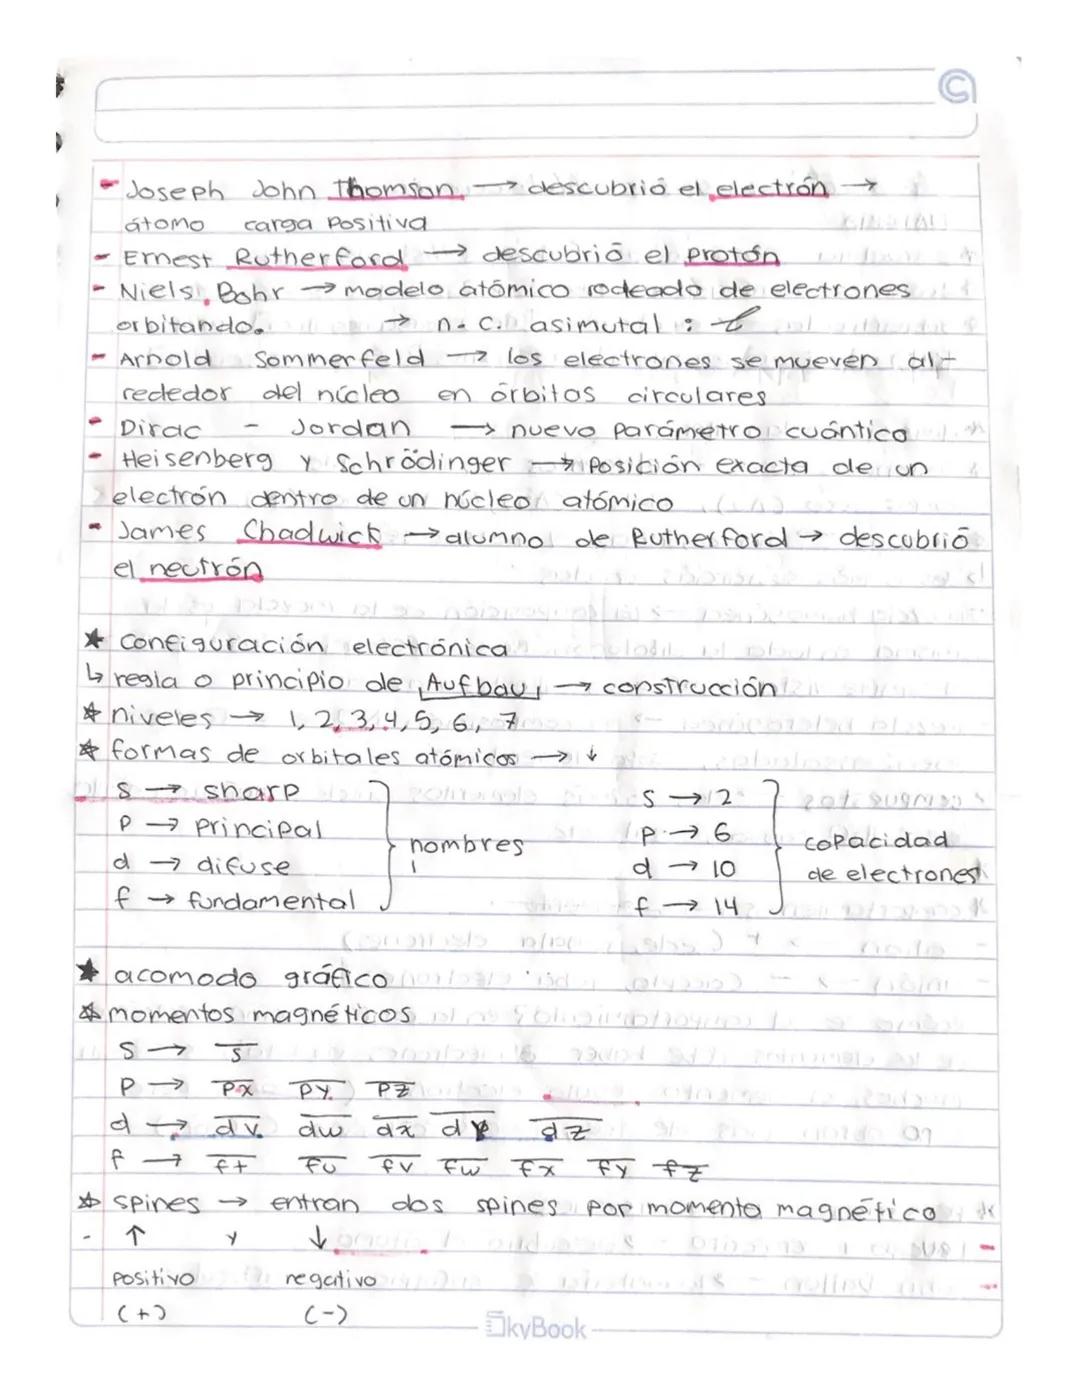 - Joseph John Thomson → descubrió el electrón →
átomo carga positiva
- Ernest Rutherford → descubrió el protón
- Niels Bohr → modelo atómico rodeado de electrones
orbitando. → n. c. asimutal : ℓ
- Arnold Sommerfeld → los electrones se mueven al-
rededor del núcleo en órbitas circulares
- Dirac - Jordan → nuevo parámetro cuántico
- Heisenberg y Schrödinger → posición exacta de un
electrón dentro de un núcleo atómico
- James Chadwick → alumno de Rutherford → descubrió
el neutrón
★ configuración electrónica
↳ regla o principio de Aufbau → construcción
★ niveles → 1, 2, 3, 4, 5, 6, 7
★ formas de orbitales atómicos → ↓
s → sharp
p → principal
d → difuse
f → fundamental
nombres
s → 2
p → 6
d → 10
f → 14
capacidad
de electrones
★ acomodo gráfico
★ momentos magnéticos
s → s
p → px py pz
d → dv dw dx dy dz
f → ft fu fv fw fx fy fz
★ spines → entran dos spines por momento magnético
- ↑ y ↓
positivo negativo
(+) (-)
SkyBook